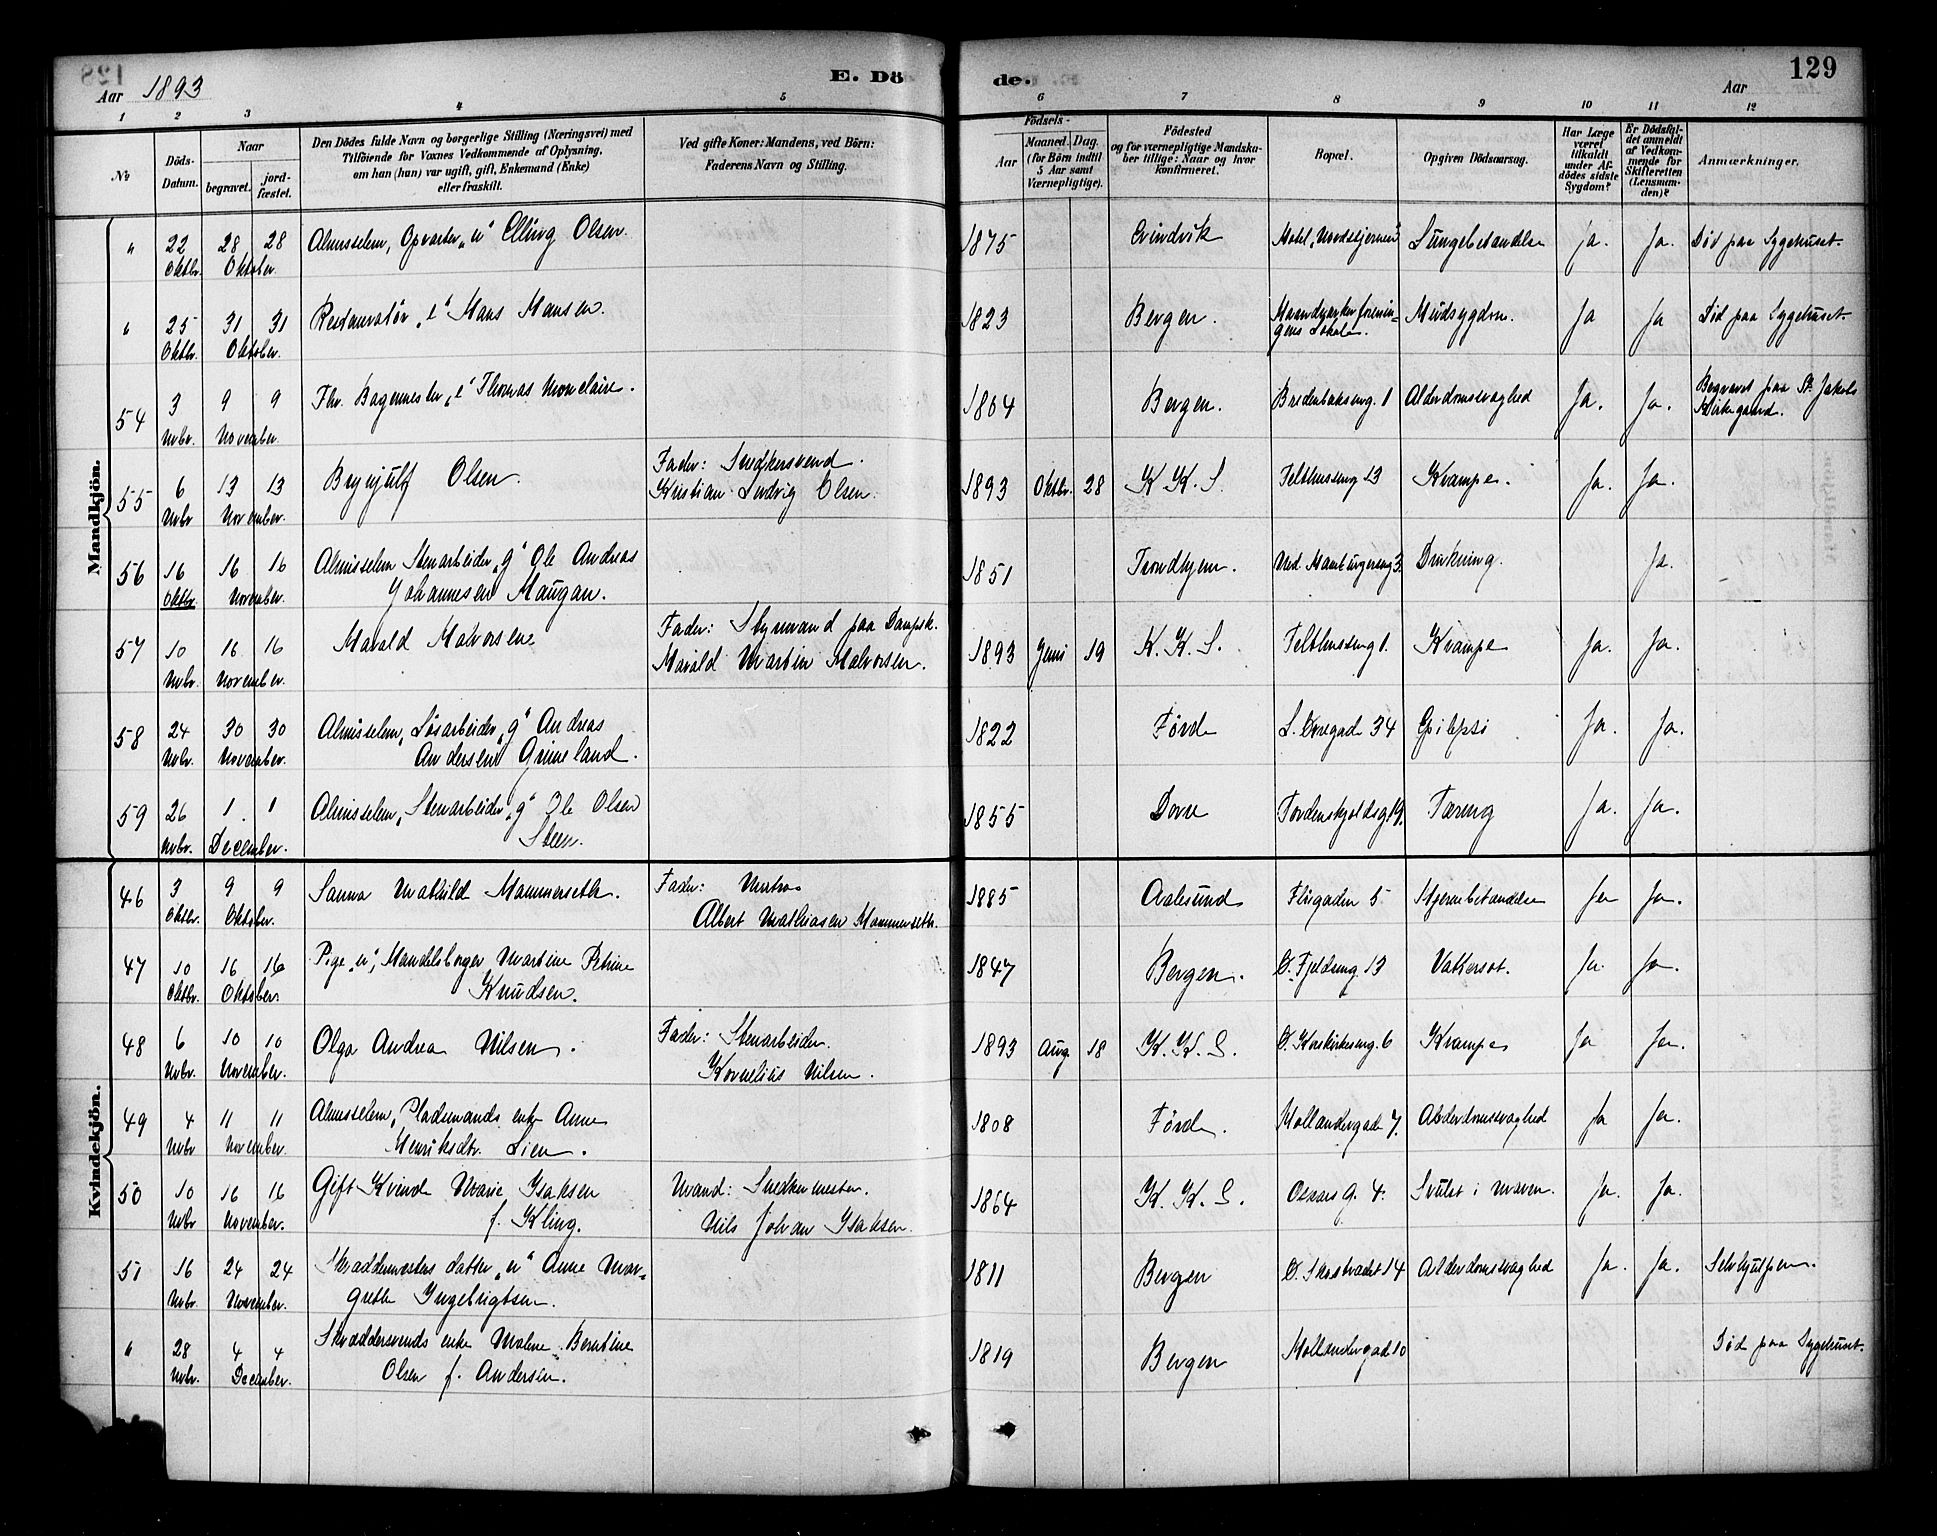 129
Aar 1893
E. Dö de.
Aar
1 2 3 4 5 6 7 8 9 10 11 12
No
Döds-Datum.
Naar
begravet.
jord-fæstet.
Den Dödes fulde Navn og borgerlige Stilling (Næringsvei) med
Tilföiende for Voxnes Vedkommende af Oplysning,
om han (hun) var ugift, gift, Enkemand (Enke)
eller fraskilt.
Ved gifte Koner: Mandens, ved Börn:
Faderens Navn og Stilling.
Födsels-
Aar
Maaned. Dag.
(for Börn indtil
5 Aar samt
Værnepligtige).
Födested
og for værnepligtige Mandska-
ber tillige: Naar og hvor
konfirmeret.
Bopæl.
Opgiven Dödsaarsag.
Har Læge
været
tilkaldt
under Af-
dödes sidste
Sygdom?
Er Dödsfal-
det anmeldt
af Vedkom-
mende for
Skifteretten
(Lensman-
den)?
Anmærkninger.
Mandkjön.
" 22 Oktbr. 28 28 Oktober Almisselem, Opvarter „u“ Elling Olsen. 1875 Evindvik Hotel „Nordstjernen“ Lungebetændelse Ja. Ja. Død paa Sygehuset.
" 25 Oktbr. 31 31 Oktober Restauratør „e“ Hans Hansen. 1823 Bergen. Haandværkerforenin-
gens Lokale. Ja Ja Død paa Sygehuset.
54 3 Novbr. 9 9 November Fhv. Bagermester „e“ Thomas 1804 Bergen. 1 Alderdomssvaghed Ja. Ja. Begravet paa St. Jakobs
Kirkegaard.
55 6 Novbr 13 13 November. Brynjulf Olsen. Fader: Snedkersvend.
Kristian Ludvig Olsen. 1893 Oktbr. 28 K. K. S. 13 Krampe. Ja. Ja.
56 16 Oktbr. 16 16 November. Almisselem Stenarbeider „g“ Ole Andreas
Johannesen Haugan. 1851 Trondhjem. Ved 3. Drukning. Ja.
57 10 Novbr. 16 16 November. Harald Halvorsen Fader: Styrmand paa Dampsk.
Harald Martin Halvorsen. 1893 Juni 19 K. K. S. 1. Krampe Ja. Ja.
58 24 Novbr. 30 30 November. Almisselem, Løsarbeider „g“ Andreas
Andersen Grimeland. 1822 Førde 34 Epilepsi Ja. Ja.
59 26 Novbr. 1. 1 December. Almisselem, Stenarbeider „g“ Ole Olsen
Steen. 1855 Dovre Tordenskjoldsg 19. Tæring Ja. Ja.
Kvindekjön.
46 3 Oktbr. 9 9 Oktober. Sanna Mathild Hammerseth. Fader: Matros
Albert Mathiasen Hammerseth. 1885 Aalesund 5 Hjernebetændelse Ja Ja.
47 10 Oktbr. 16 16 Oktober. Pige „u“, Handelsborger Martine Petrine
Knudsen. 1847 Bergen. Ø. Fjeldsmug 13 Vattersot. Ja Ja.
48 6 Novbr. 10 10 November. Olga Andrea Nilsen. Fader: Stenarbeider.
Kornelius Nilsen. 1893 Aug. 18 K. K. S. Ø. Korskirkesmug. 6 Krampe Ja Ja.
49 4 Novbr 11 11 November. Almisselem, Pladsmands enke Anne
Henriksdtr. Lien. 1808 Førde. Hollændergade 7. Alderdomssvaghed Ja Ja.
50 10 Novbr 16 16 November. Gift Kvinde Marie Isaksen
f. Kling. Mand: Snedkermester.
Nils Johan Isaksen. 1864 K. K. S. g. 4. Svulst i maven. Ja. Ja.
51 16 Novbr. 24 24 November. Skræddermesters datter „u“ Anne Mar-
grethe Ingebrigtsen. 1811 Bergen Ø. Skostrædet 14 Alderdomssvaghed Ja. Ja. Selvhjulpen.
" 28 Novbr. 4 4 December. Skræddersvends enke Malene Berntine
Olsen f. Andersen. 1819 Bergen Hollændergad 10 Død paa Sygehuset.